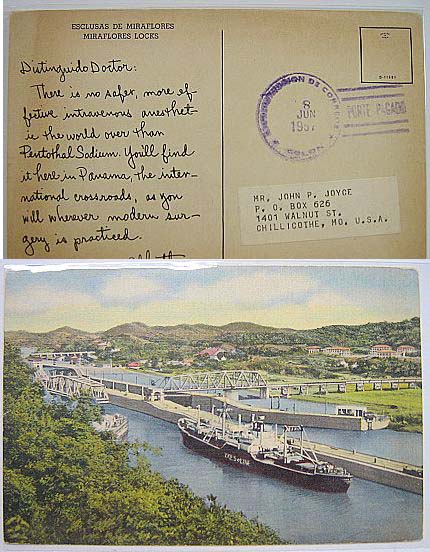 ESCLUSAS DE MIRAFLORES
MIRAFLORES LOCKS
Distinguido Doctor:
There is no safer, more ef-
fective intravenous anesthet-
ic the world over than
Pentothal Sodium. You'll find
it here in Panama, the inter-
national crossroads, as you
will wherever modern sur-
gery is practiced.
Abbott
DE CORREOS
COLON
8
JUN
1957
PORTE PAGADO
MR. JOHN P. JOYCE
P. O. BOX 626
1401 WALNUT ST.
CHILLICOTHE, MO. U.S.A.